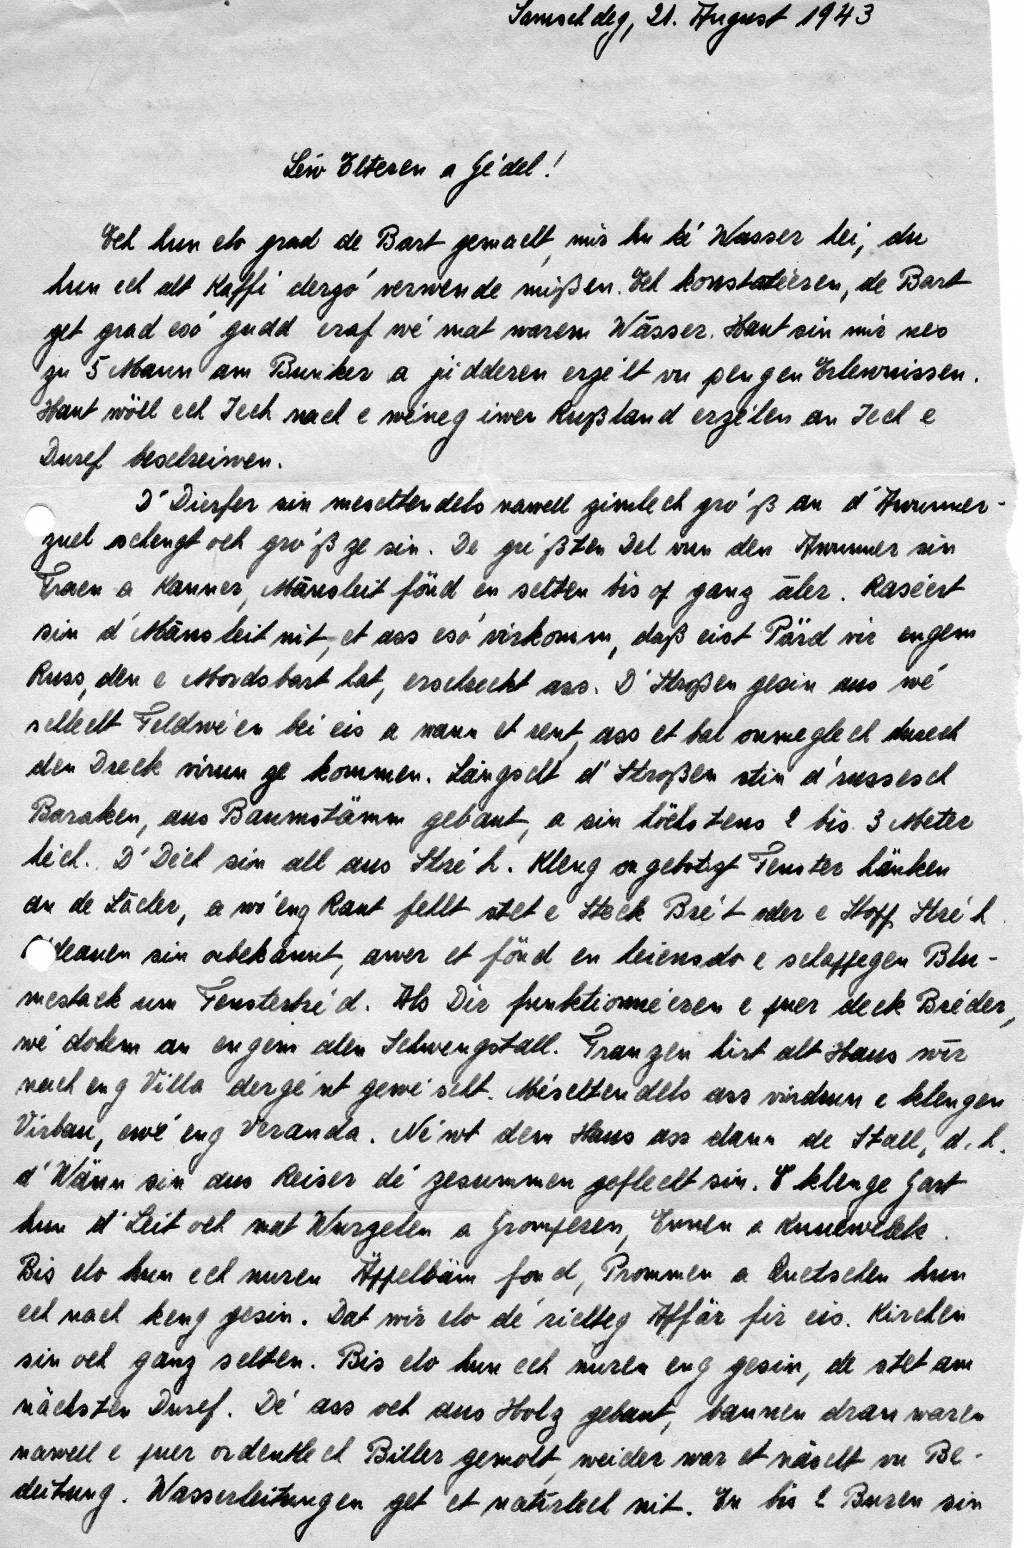 Samschdeg, 21. August 1943
Léiw Elteren a Gé'del!
Ech hun elo grad de Bart gemaclt, mir hu ké Wasser héi, du
hun ech alt Kaffi dergó verwende müßen. Ech konstatéieren, de Bart
get grad esó gudd eraf wé mat warem Wässer. Haut sin mir nes
zu 5 Mann am Bunker a jiddereen erzeilt vu sengen Erlewnissen.
Haut wöll ech Iech nach e wéineg iwer Rußland erzélen an Iech e
Duref beschreiwen.
D'Dierfer sin meschtendels nawell zimlech gró'ß an d'Awunner-
zuel schengt och gró'ß ze sin. De gré'ßten Del vun den Awunner sin
Fraen a Kanner, Mänsleit fönd en selten bis op ganz äler. Raséiert
sin d'Mänsleit nit, et ass esó virkomm, daß eist Pärd vir engem
Russ, den e Mordsbart hat, erschreckt ass. D'Stroßen gesin aus wé
schlecht Feldwé'en bei eis a wann et rent, ass et bal onmeglech durech
den Dreck virun ze kommen. Längscht d'Stroßen stin d'russesch
Baraken, aus Baumstämm gebaut, a sin héchstens 2 bis 3 Meter
héich. D'Déch sin all aus Stré'h. Kleng ongebotzt Fenster hänken
an de Lächer, a wó eng Raut feelt stet e Steck Bré't oder e Stopp Stré'h.
sin onbekannt, awer et fönd en heiansdo e schappegen Blu-
mestack um Fensterbré'd. Als Dir funktionnéieren e puer deck Bréder,
wé doheem an engem alen Schwengstall. Franzen hirt alt Haus wir
nach eng Villa dergé'nt gewé'scht. Méschtendels ass virdrun e klengen
Virbau, ewé eng Veranda. Né'wt dem Haus ass dann de Stall, d.h.
d'Wänn sin aus Reiser dé zesummen geflecht sin. E klenge Gart
hun d'Leit och mat Wurzelen a Gromperen, Ennen a Knuewelek.
Bis elo hun ech nuren Äppelbäm fond, Prommen a Quetschen hun
ech nach keng gesin. Dat wir elo dé richteg Affär fir eis. Kirchen
sin och ganz selten. Bis elo hun ech nuren eng gesin, de stet am
nächsten Duref. Dé ass och aus Holz gebaut, bannen dran waren
nawell e puer ordentlech Biller gemolt, weider war et näischt vu Be-
deitung. Wasserleitungen get et natirlech nit. En bis 2 Buren sin